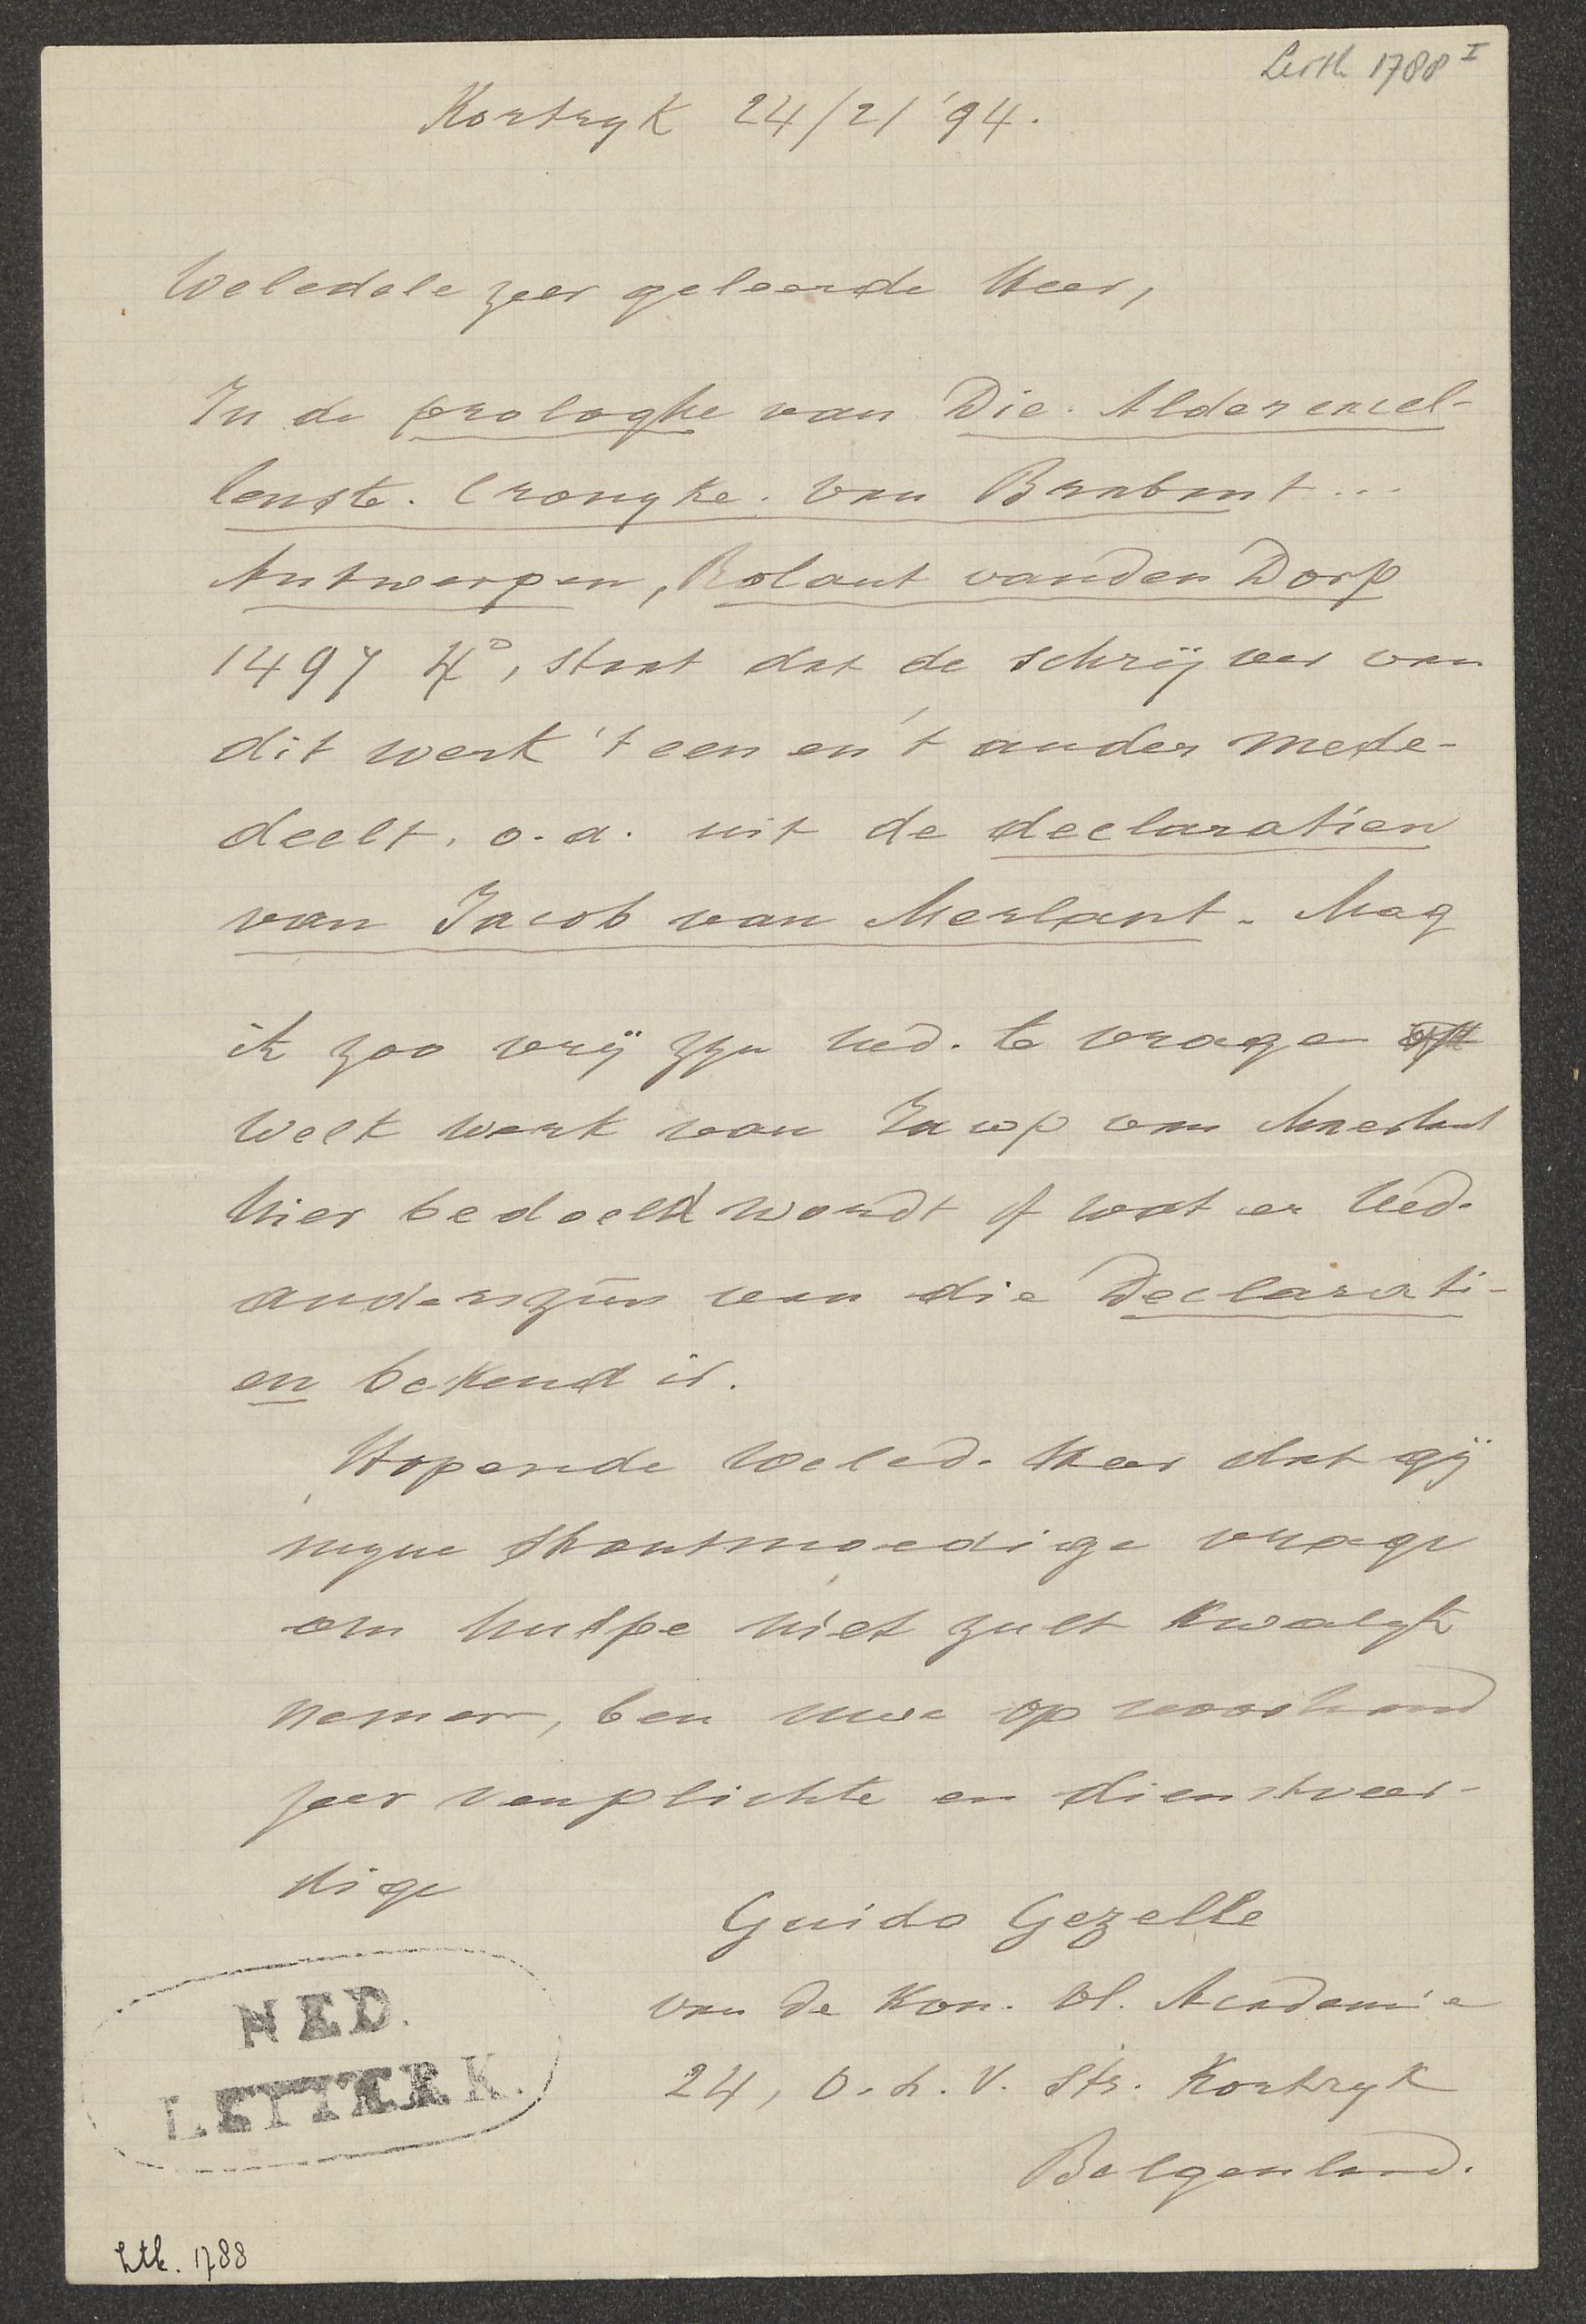 Letth 1788 I
Kortryk 24/2/'94.
Weledele zeer geleerde Heer,
In de prologhe van Die. Alderexcel-
lenste. Cronyke. van Brabant...
Antwerpen, Rolant vanden Dorp
1497 4°, staat dat de schrijver van
dit werk 't een en 't ander mede-
deelt, o.a. uit de declaratien
van Jacob van Merlant. Mag
ik zoo vrij zyn Ued. te vragen
welk werk van Jacop van Maerlant
hier bedoeld wordt of wat er Ued.
anderszins van die Declarati-
en bekend is.
Hopende Weled. Heer dat gij
myne stoutmoedige vrage
om hulpe niet zult kwalyk
nemen, ben uwe op voorhand
zeer verplichte en dienstveer-
dige
Guido Gezelle
van de Kon. Vl. Academie
24, O.L.V. Str. Kortryk
Belgenland.
NED.
LETTERK.
Ltk. 1788